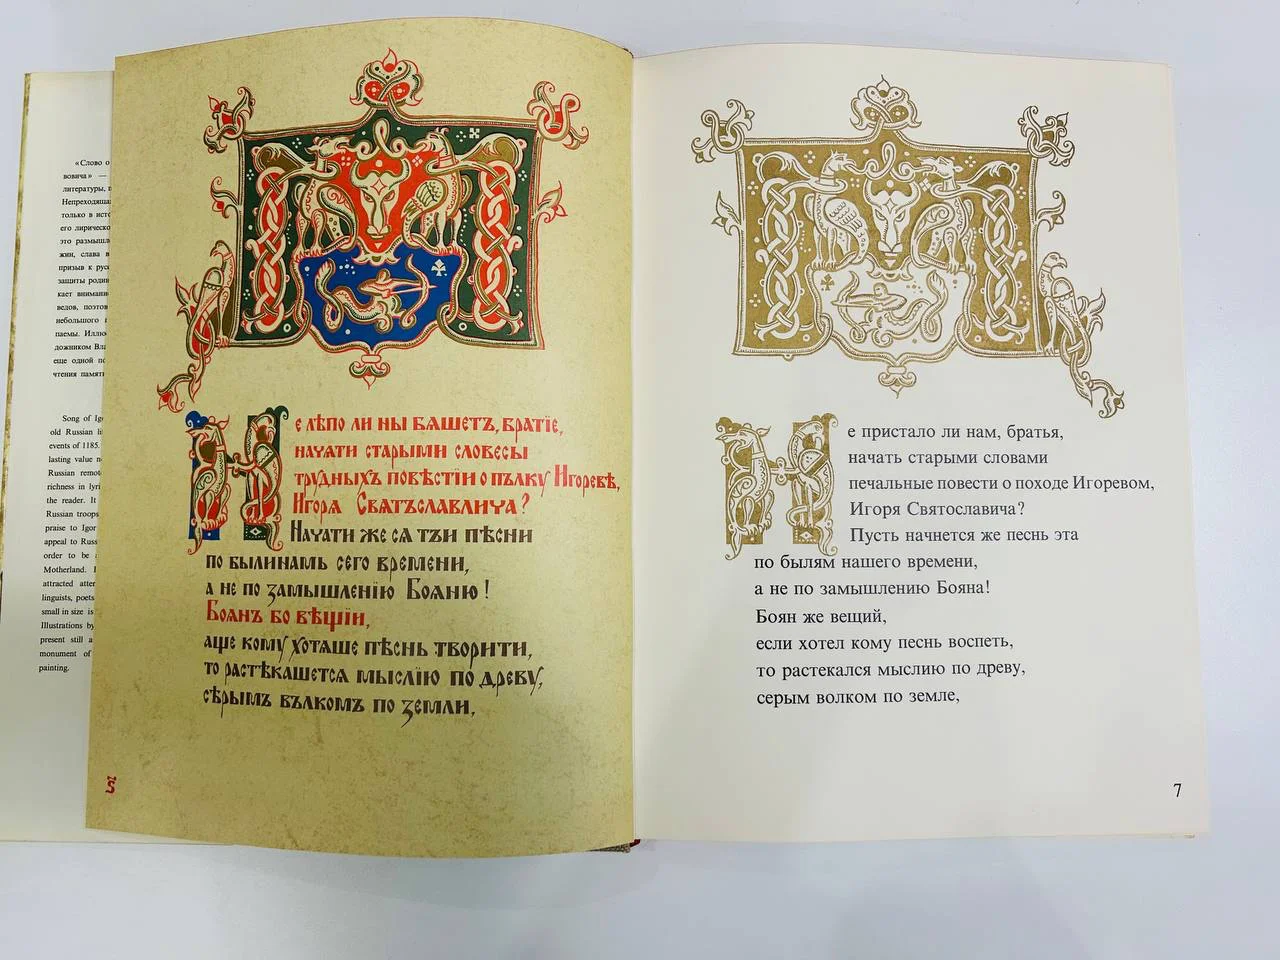 «Слово о
вовича» —
литературы,
Непреходящая
только в
его лирическо
это размышл
жин, слава в
призыв к рус
защиты роди
кает внимани
ведов, поэтов
небольшого
паемы. Иллю
дожником Вла
еще одной
чтения памят
Song of Igo
old Russian
events of 1185.
lasting value
Russian remot
richness in
the reader. It
Russian troops
praise to Igor
appeal to Russ
order to be
Motherland.
attracted atte
linguists, poets
small in size is
Illustrations by
present still a
monument of
painting.
Не лѣпо ли ны бяшетъ, братїе,
начати старыми словесы
трудныхъ повѣстїи о пълку Игоревѣ,
Игоря Святъславлича?
Начати же ся тъи пѣсни
по былинамъ сего времени,
а не по замышленїю Бояню!
Боянъ бо вѣщїи,
аще кому хотяше пѣснь творити,
то растѣкашется мыслїю по древу,
сѣрымъ вълкомъ по земли,
ѕ
Не пристало ли нам, братья,
начать старыми словами
печальные повести о походе Игоревом,
Игоря Святославича?
Пусть начнется же песнь эта
по былям нашего времени,
а не по замышлению Бояна!
Боян же вещий,
если хотел кому песнь воспеть,
то растекался мыслию по древу,
серым волком по земле,
7